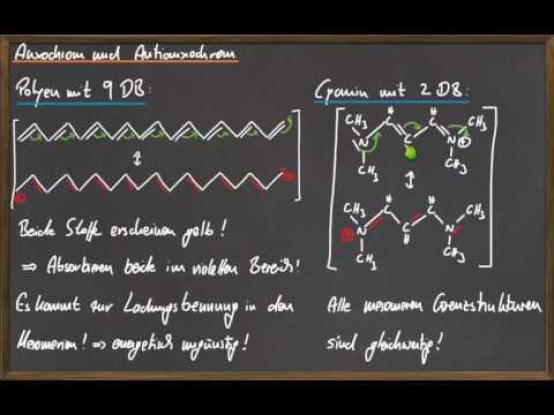 Auxochrom und Antiauxochrom
Polyen mit 9 DB:
Cyanin mit 2 DB:
CH3 H H CH3
N C N ⊕
CH3 CH3
⊕ ⊖
CH3 H CH3
⊕ N N
CH3 H CH3
Beide Stoffe erscheinen gelb!
⇒ Absorbieren beide im violetten Bereich!
Es kommt zur Ladungstrennung in den
Mesomerien! ⇒ energetisch ungünstig!
Alle mesomeren Grenzstrukturen
sind gleichwertig!